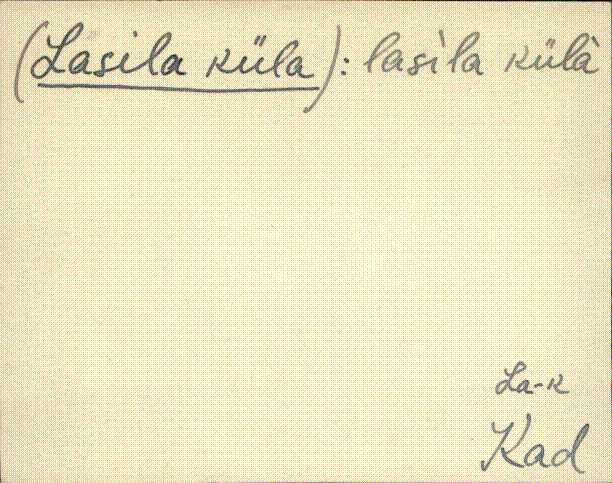 (Lasila küla): lasìla külà
La-k
Kad